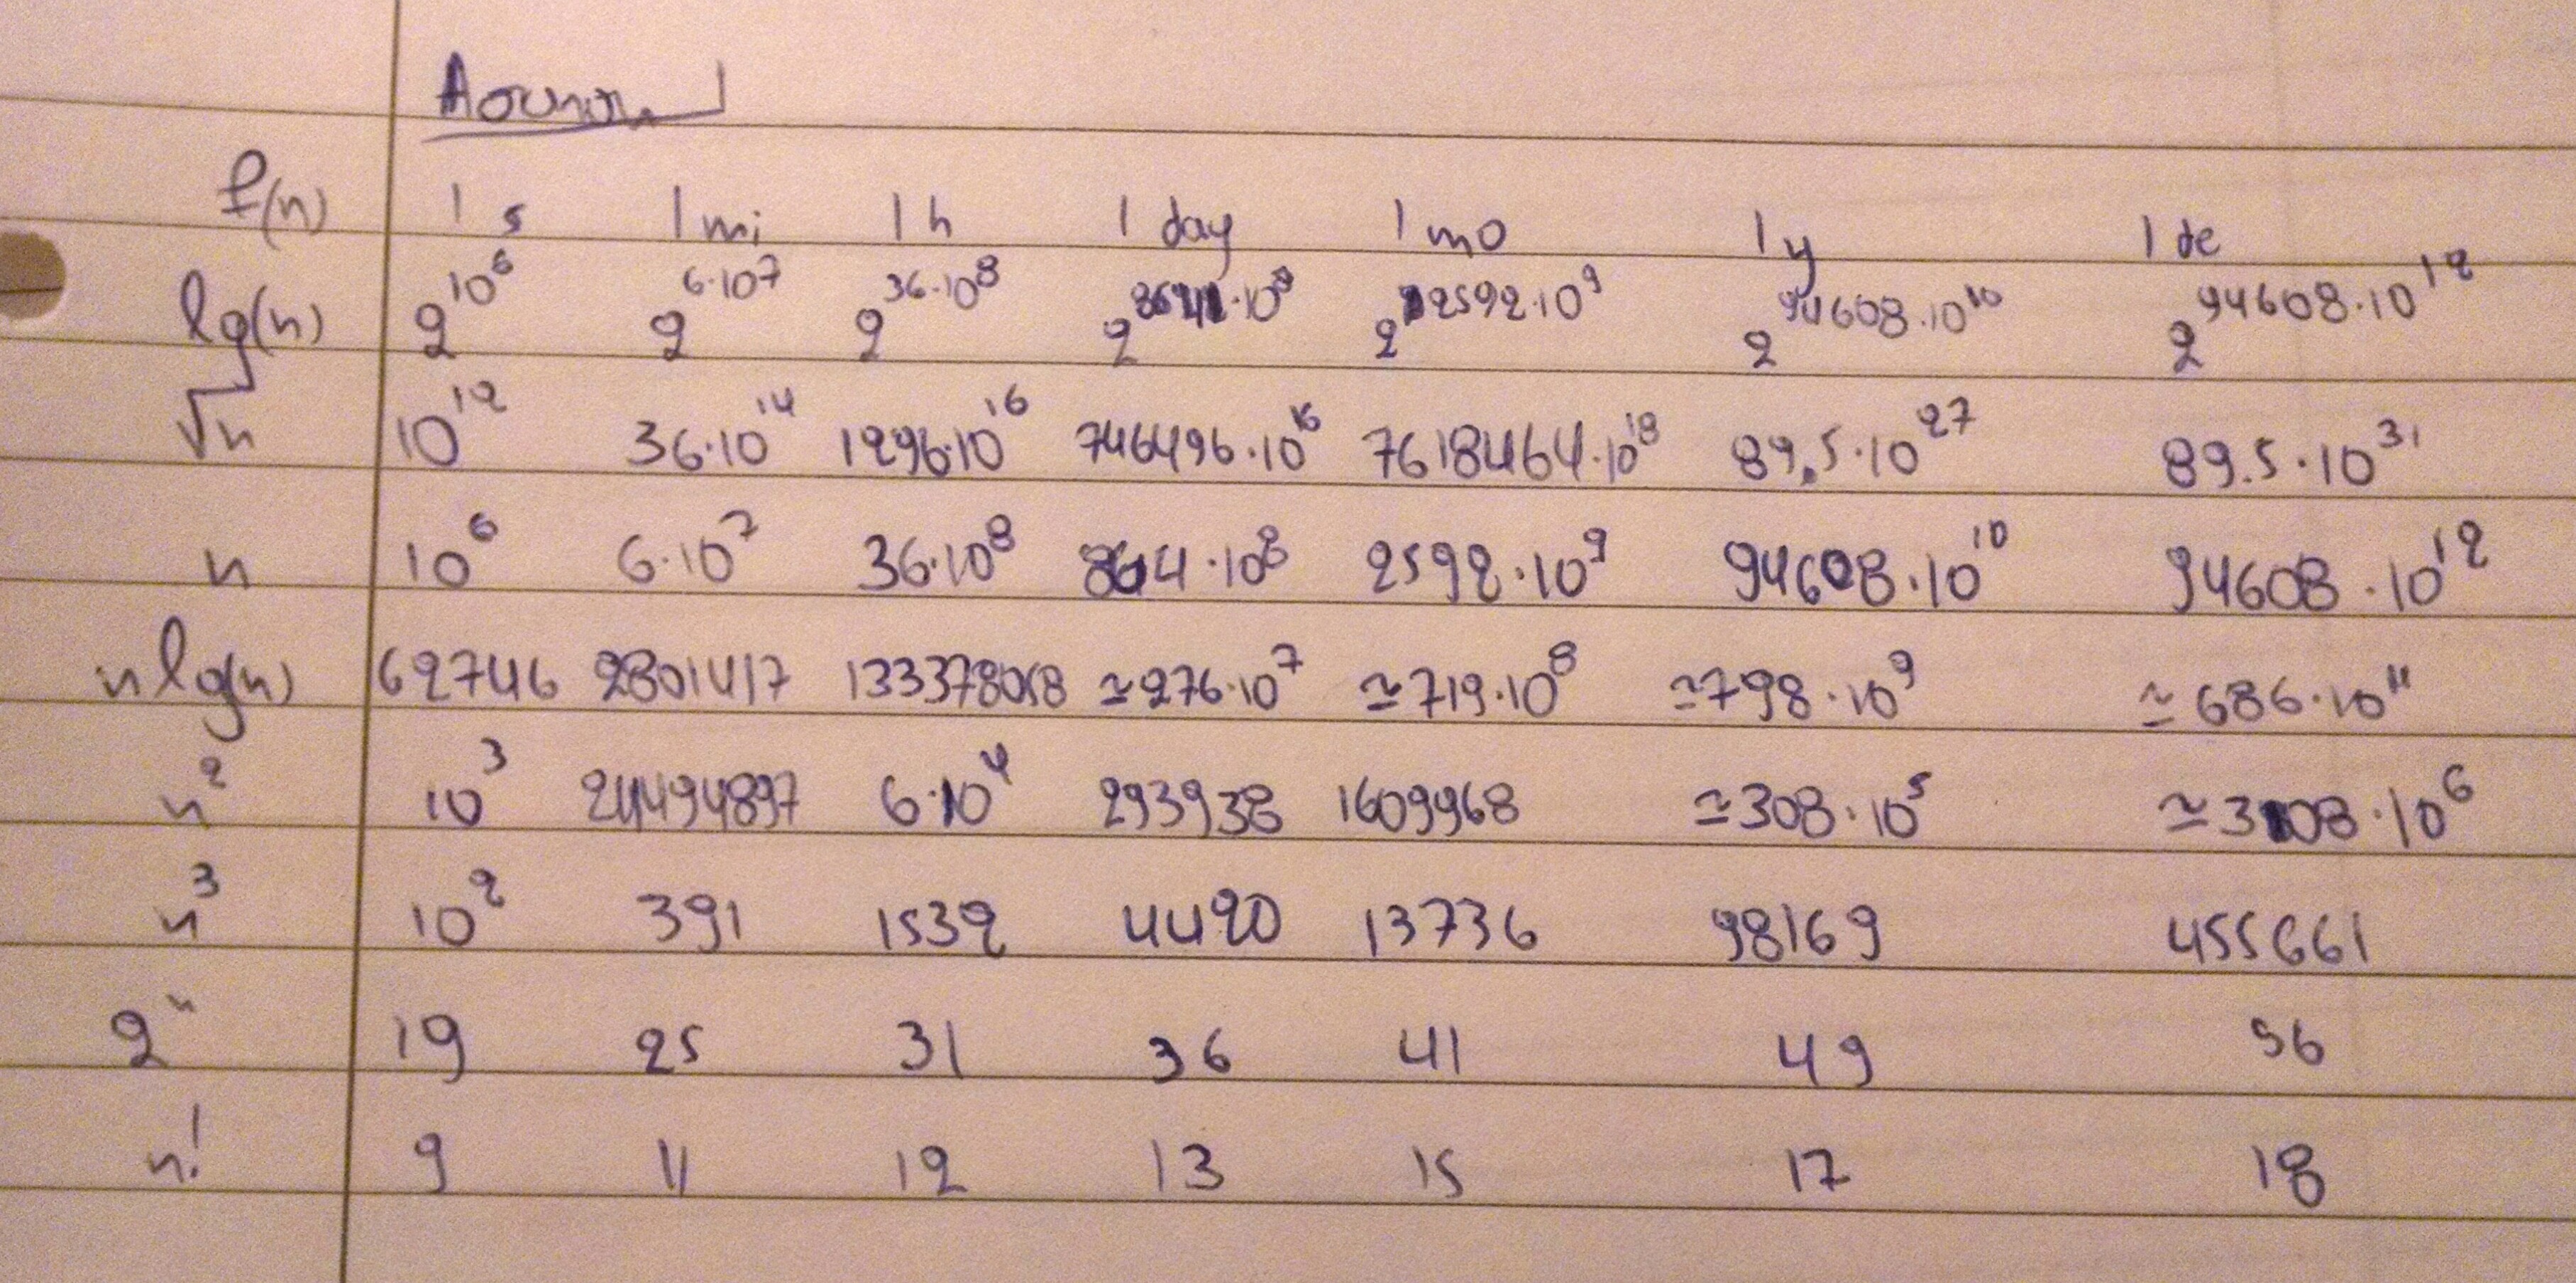 f(n) 1 s 1 mi 1 h 1 day 1 mo 1 y 1 de
lg(n) 2^10^6 2^6·10^7 2^36·10^8 2^864·10^8 2^2592·10^9 2^94608·10^10 2^94608·10^12
√n 10^12 36·10^14 1296·10^16 746496·10^16 7618464·10^18 89.5·10^27 89.5·10^31
n 10^6 6·10^7 36·10^8 864·10^8 2592·10^9 94608·10^10 94608·10^12
n lg(n) 62746 2801417 133378058 ≃276·10^7 ≃719·10^8 ≃798·10^9 ≃686·10^11
n^2 10^3 24494897 6·10^4 293938 1609968 ≃308·10^5 ≃308·10^6
n^3 10^2 391 1532 4420 13736 98169 455661
2^n 19 25 31 36 41 49 56
n! 9 11 12 13 15 17 18